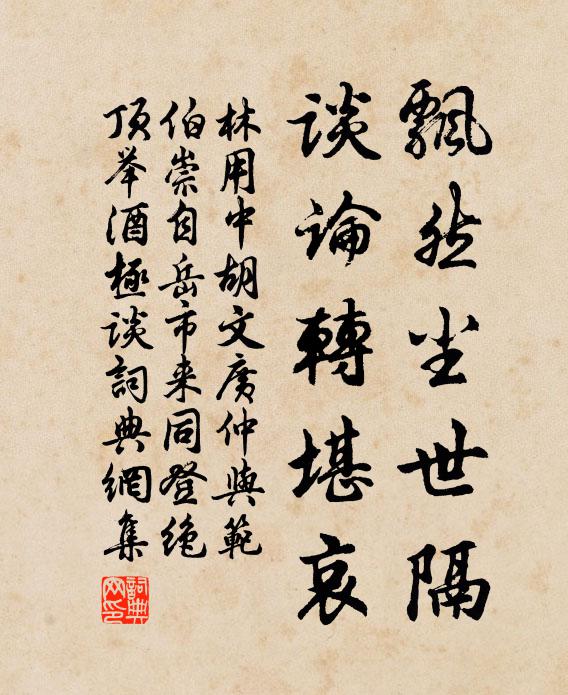 飄然尘世隔
谈論轉堪哀
林用中胡文廣仲與範
伯崇自岳市来同登绝
顶举酒極谈詞典網集
詞典
网印